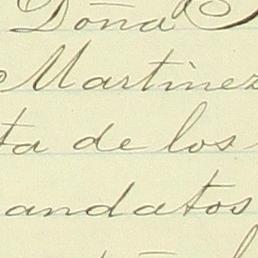 Doña
Martinez
ta de los
andatos